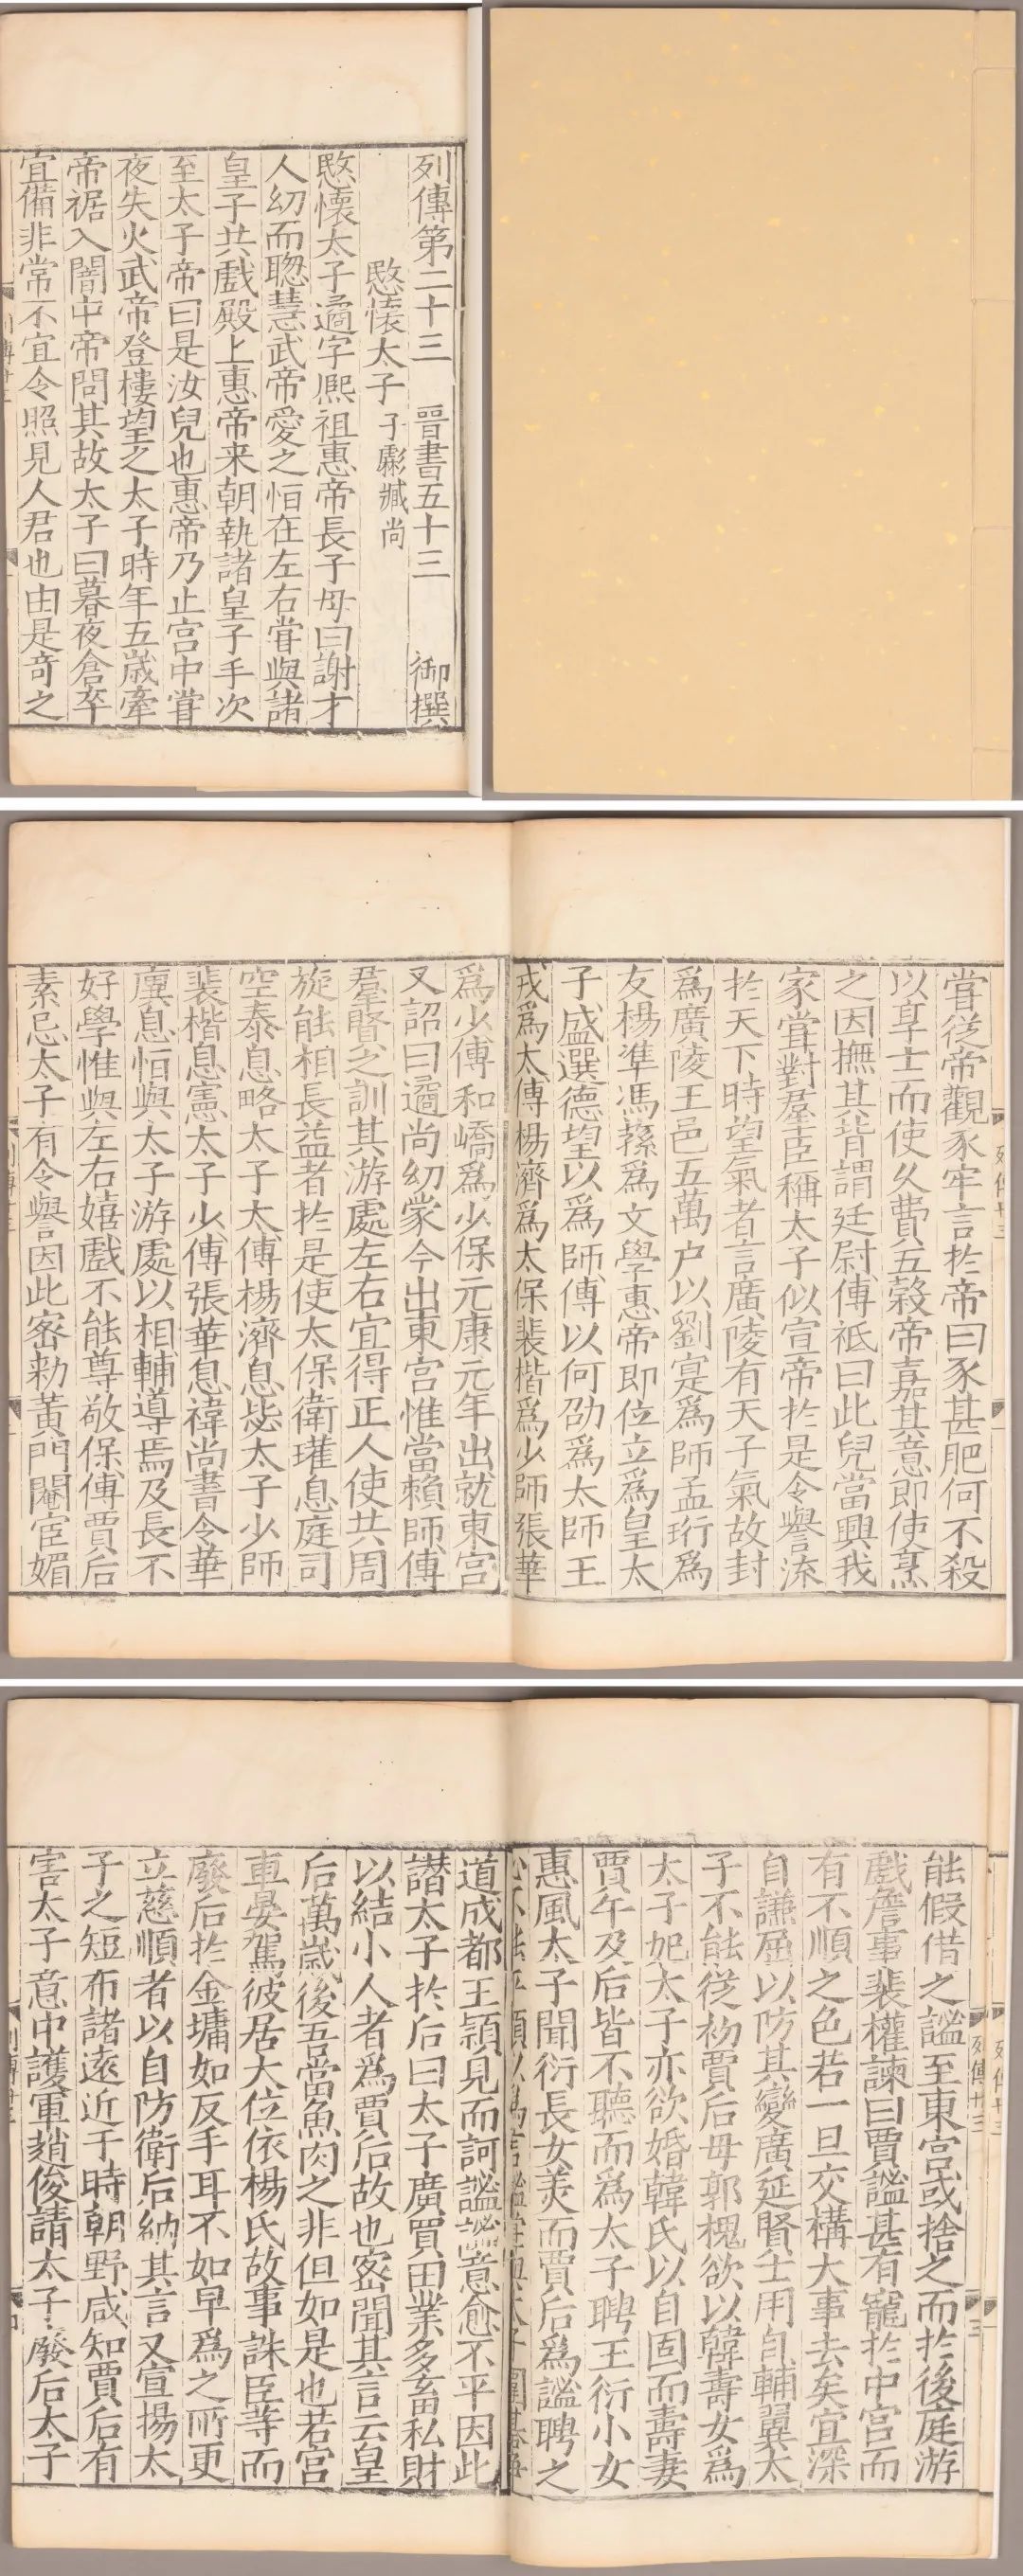 列傳第二十三　晉書五十三　御撰
愍懷太子　子虨臧尚
愍懷太子遹字熈祖惠帝長子母曰謝才
人幼而聦慧武帝愛之恒在左右甞與諸
皇子共戲殿上惠帝来朝執諸皇子手次
至太子帝曰是汝兒也惠帝乃止宫中甞
夜失火武帝登樓望之太子時年五歳牽
帝裾入闇中帝問其故太子曰暮夜倉卒
宜備非常不宜令照見人君也由是奇之
甞從帝觀豕牢言於帝曰豕甚肥何不殺
以享士而使久費五穀帝嘉其意即使烹
之因撫其背謂廷尉傅祗曰此兒當興我
家甞對羣臣稱太子似宣帝於是令譽流
於天下時望氣者言廣陵有天子氣故封
爲廣陵王邑五萬户以劉寔爲師孟珩爲
友楊準馮蓀爲文學惠帝即位立爲皇太
子盛選德望以爲師傅以何劭爲太師王
戎爲太傅楊濟爲太保裴楷爲少師張華
爲少傅和嶠爲少保元康元年出就東宫
又詔曰遹尚幼蒙今出東宫惟當賴師傅
羣賢之訓其游處左右宜得正人使共周
旋能相長益者於是使太保衛瓘息庭司
空泰息略太子太傅楊濟息毖太子少師
裴楷息憲太子少傅張華息禕尚書令華
廙息恒與太子游處以相輔導焉及長不
好學惟與左右嬉戲不能尊敬保傅賈后
素忌太子有令譽因此密勑黄門閹宦媚
能假借之謐至東宫或捨之而於後庭游
戲詹事裴權諫曰賈謐甚有寵於中宫而
有不順之色若一旦交構大事去矣宜深
自謙屈以防其變廣延賢士用自輔翼太
子不能從初賈后母郭槐欲以韓壽女爲
太子妃太子亦欲婚韓氏以自固而壽妻
賈午及后皆不聽而爲太子聘王衍小女
惠風太子聞衍長女美而賈后爲謐聘之
道成都王穎見而訶謐謐意愈不平因此
譖太子於后曰太子廣買田業多畜私財
以結小人者爲賈后故也密聞其言云皇
后萬歳後吾當魚肉之非但如是也若宫
車晏駕彼居大位依楊氏故事誅臣等而
廢后於金墉如反手耳不如早爲之所更
立慈順者以自防衛后納其言又宣揚太
子之短布諸遠近于時朝野咸知賈后有
害太子意中護軍趙俊請太子廢后太子